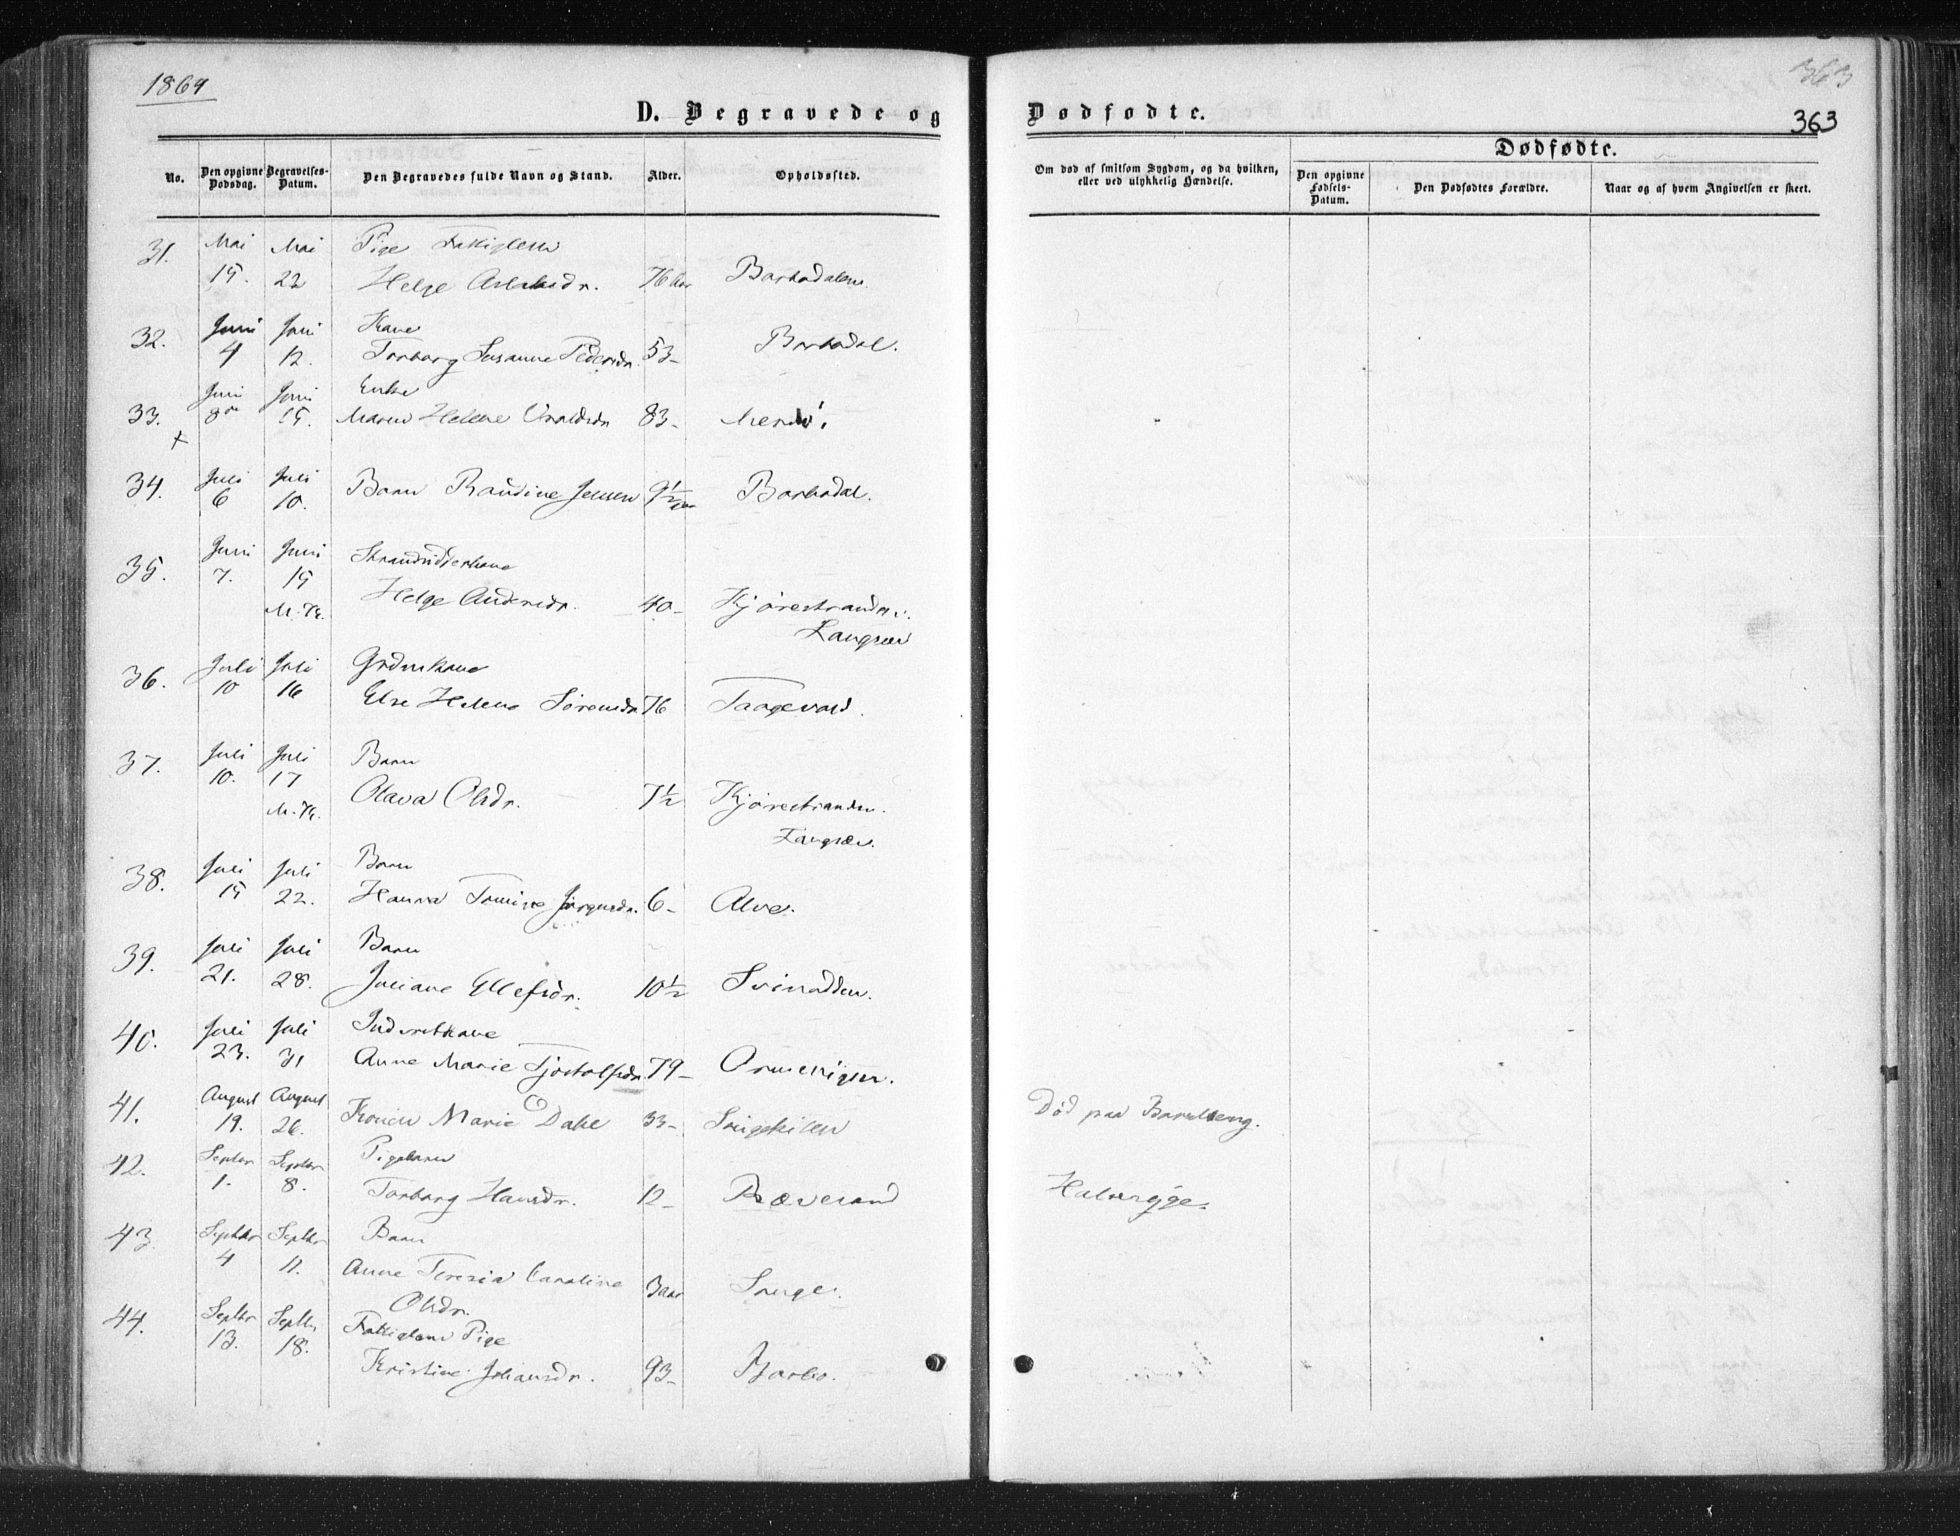 1864
363
D. Begravede og Dødfødte.
363
No.
Den opgivne Dødsdag.
Begravelses-Datum.
Den Begravedes fulde Navn og Stand.
Alder.
Opholdssted.
Om død af smitsom Sygdom, og da hvilken, eller ved ulykkelig Hændelse.
Dødfødte.
Den opgivne Fødsels-Datum.
Den Dødfødtes Forældre.
Naar og af hvem Angivelsen er skeet.
31. Mai Mai Pige Fattiglem
15. 22 Helge Aslaksdr. 76 Aar Barbodalen
32. Juni Juni Kone
4 12. Torborg Susanne Pedersdr. 53- Barbodal.
Juni Juni Enke
33. 8de 15. Maren Helene 83-
34. Juli Juli
6 10. Barn Raudine Jensen 9½ Aar Barbodal.
35. Juni Juni
7. 19 Helge Andersdr. 40- Kjørestranden
M. K. Langsæv
36. Juli Juli
10 16 Else Helene Sørensdr. 76 Taagevold.
37. Juli Juli Barn
10. 17 Olava Olsdr. 7½ Kjørestranden.
M. K. Langsæv.
38. Juli Juli Barn
15 22. Hanna Tomine Jørgensdr. 6- Alve.
39. Juli Juli Barn
21. 28. Juliane Ellefsdr. 10½ Svinodden.
40. Juli Juli Inderstkone
23. 31 Anne Marie Tjostolfsdr. 79-
41. August August
19. 26. Konen Marie Dahl 33- Songekilen Død paa Barselseng.
42. Septbr Septbr Pigebarn
1. 8. Torborg Hansdr. 12- Rævesand Halssyge.
43. Septbr Septbr Barn
4 11. Anne Teresia Caroline 3 aar Songe.
Olsdr.
44. Septbr Septbr Fattiglem Pige
13. 18. Kristine Johansdr. 93- Barbo.